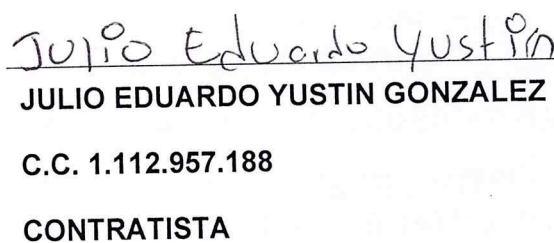 Julio Eduardo Yustin
JULIO EDUARDO YUSTIN GONZALEZ
C.C. 1.112.957.188
CONTRATISTA